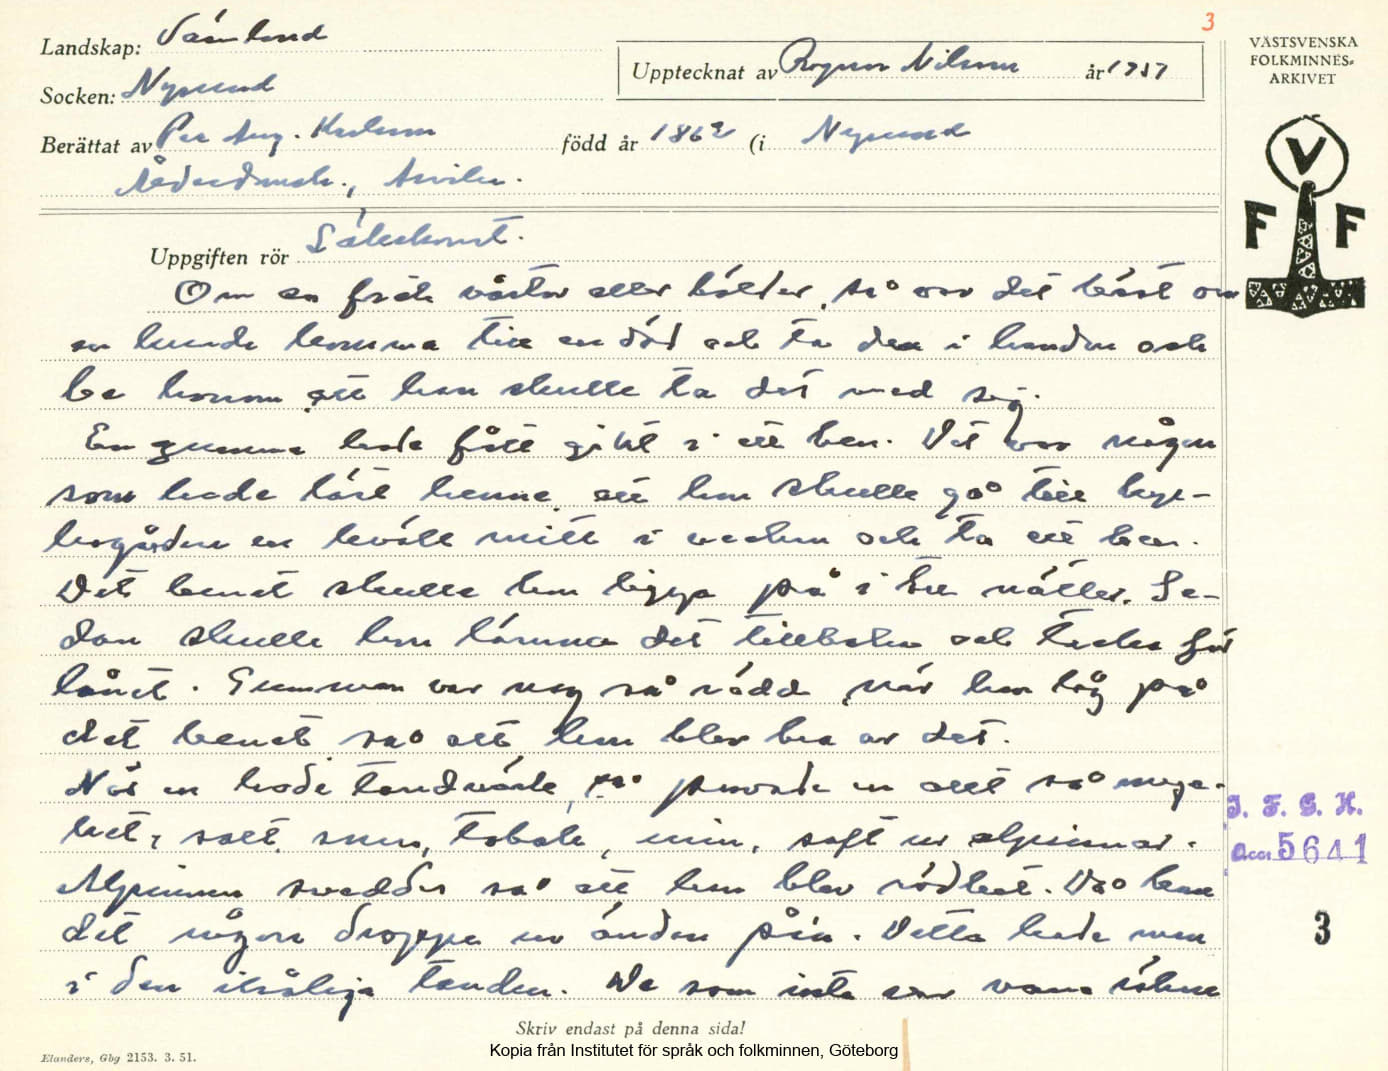 3
Landskap: Värmland
Socken: Nysund
Upptecknat av Ragnar Nilsson år 1957
VÄSTSVENSKA
FOLKMINNES-
ARKIVET
V
F F
Berättat av Per Aug. Karlsson född år 1862 (i Nysund
Åtorp.
Uppgiften rör Läkekonst.
Om en fick vårtor eller bölder, så var det bäst om
en kunde komma till en död och ta den i handen och
be honom att han skulle ta det med sig.
En gumma hade fått gikt i ett ben. Det var någon
som hade lärt henne att hon skulle gå till kyr-
kogården en kväll mitt i veckan och ta ett ben.
Det benet skulle hon ligga på i tre nätter. Se-
dan skulle hon lämna det tillbaka och tacka för
lånet. Gumman var nog så rädd när hon låg på
det benet så att hon blev bra av det.
När en hade tandvärk, så provade en allt så myc-
ket, salt, snus, tobak, saft ur alpinnar.
Alpinnen svedde så att hon blev rödhet. Då kom
det någon droppe ur änden på'n. Detta hade man
i den ihåliga tanden. De som inte var vana röka
I. F. G. H.
acc. 5641
3
Skriv endast på denna sida!
Elanders, Gbg 2153. 3. 51.
Kopia från Institutet för språk och folkminnen, Göteborg